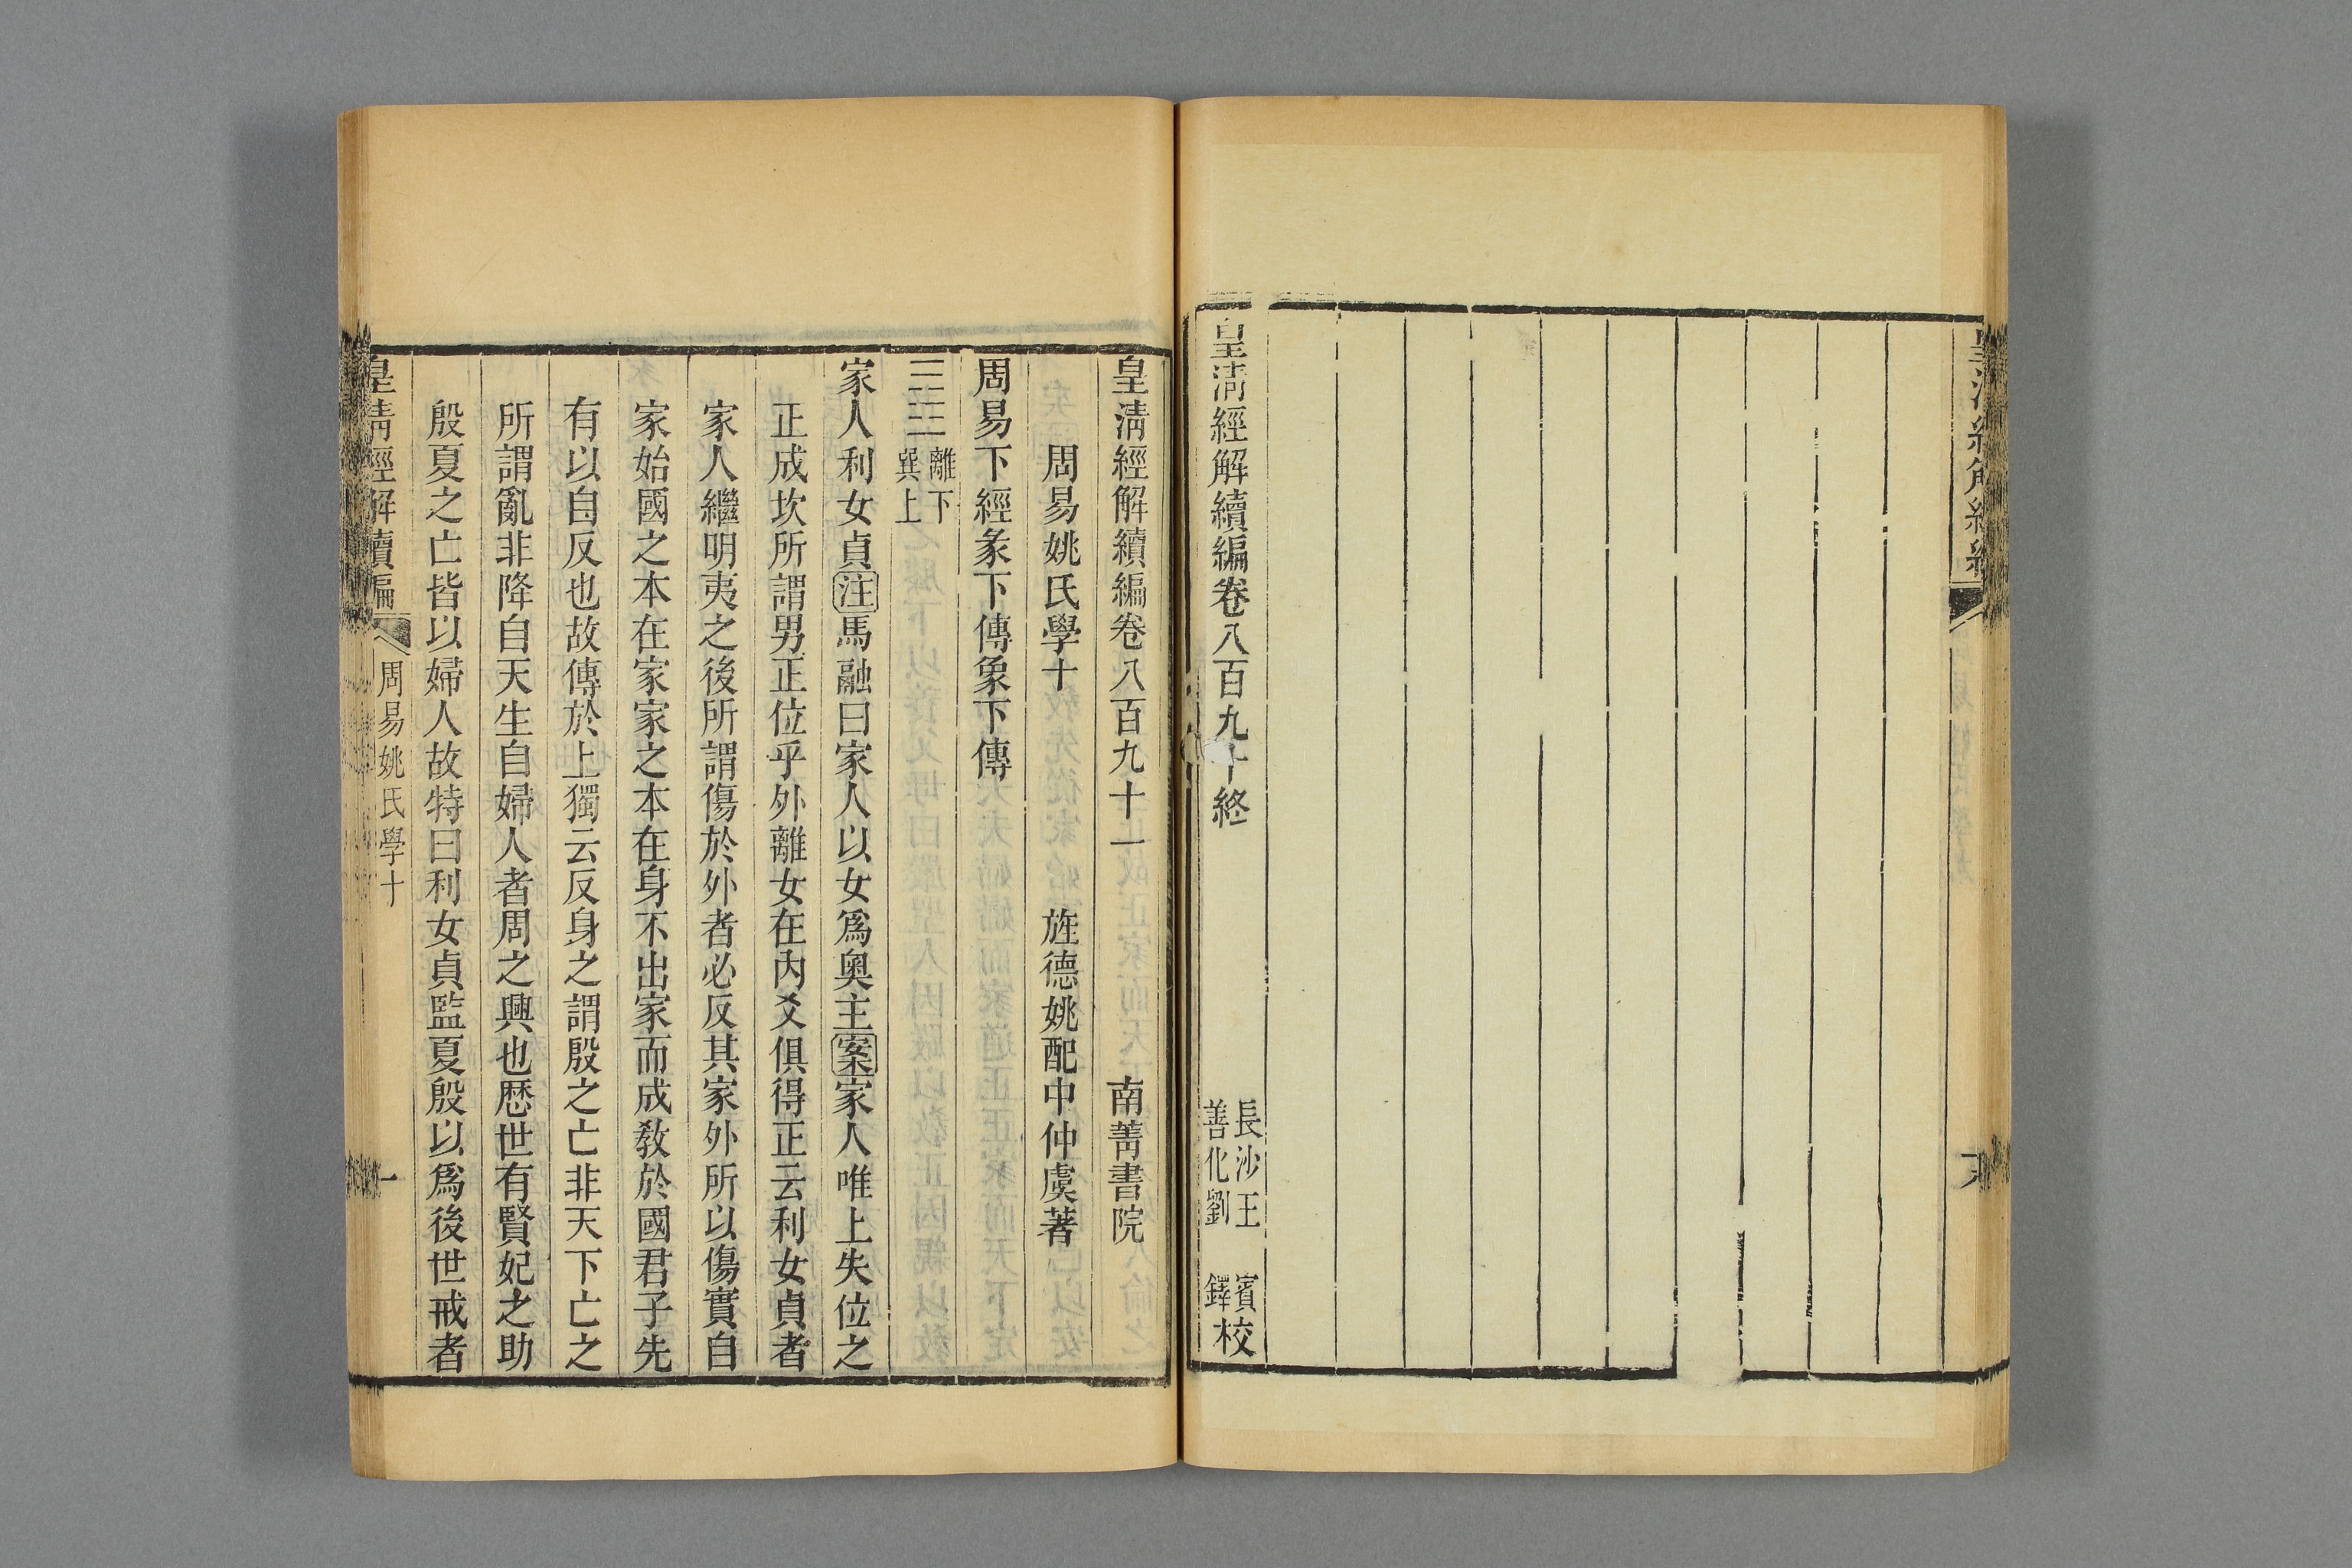 皇清經解續編卷八百九十終
長沙王 賓
善化劉 鐸校
皇清經解續編卷八百九十一 南菁書院
周易姚氏學十 旌德姚配中仲虞著
周易下經彖下傳象下傳
離下
巽上
家人利女貞注馬融曰家人以女爲奥主案家人唯上失位之
正成坎所謂男正位乎外離女在内爻俱得正云利女貞者
家人繼明夷之後所謂傷於外者必反其家外所以傷實自
家始國之本在家家之本在身不出家而成敎於國君子先
有以自反也故傳於上獨云反身之謂殷之亡非天下亡之
所謂亂非降自天生自婦人者周之興也厯世有賢妃之助
殷夏之亡皆以婦人故特曰利女貞監夏殷以爲後世戒者
皇清經解續編 周易姚氏學十 一